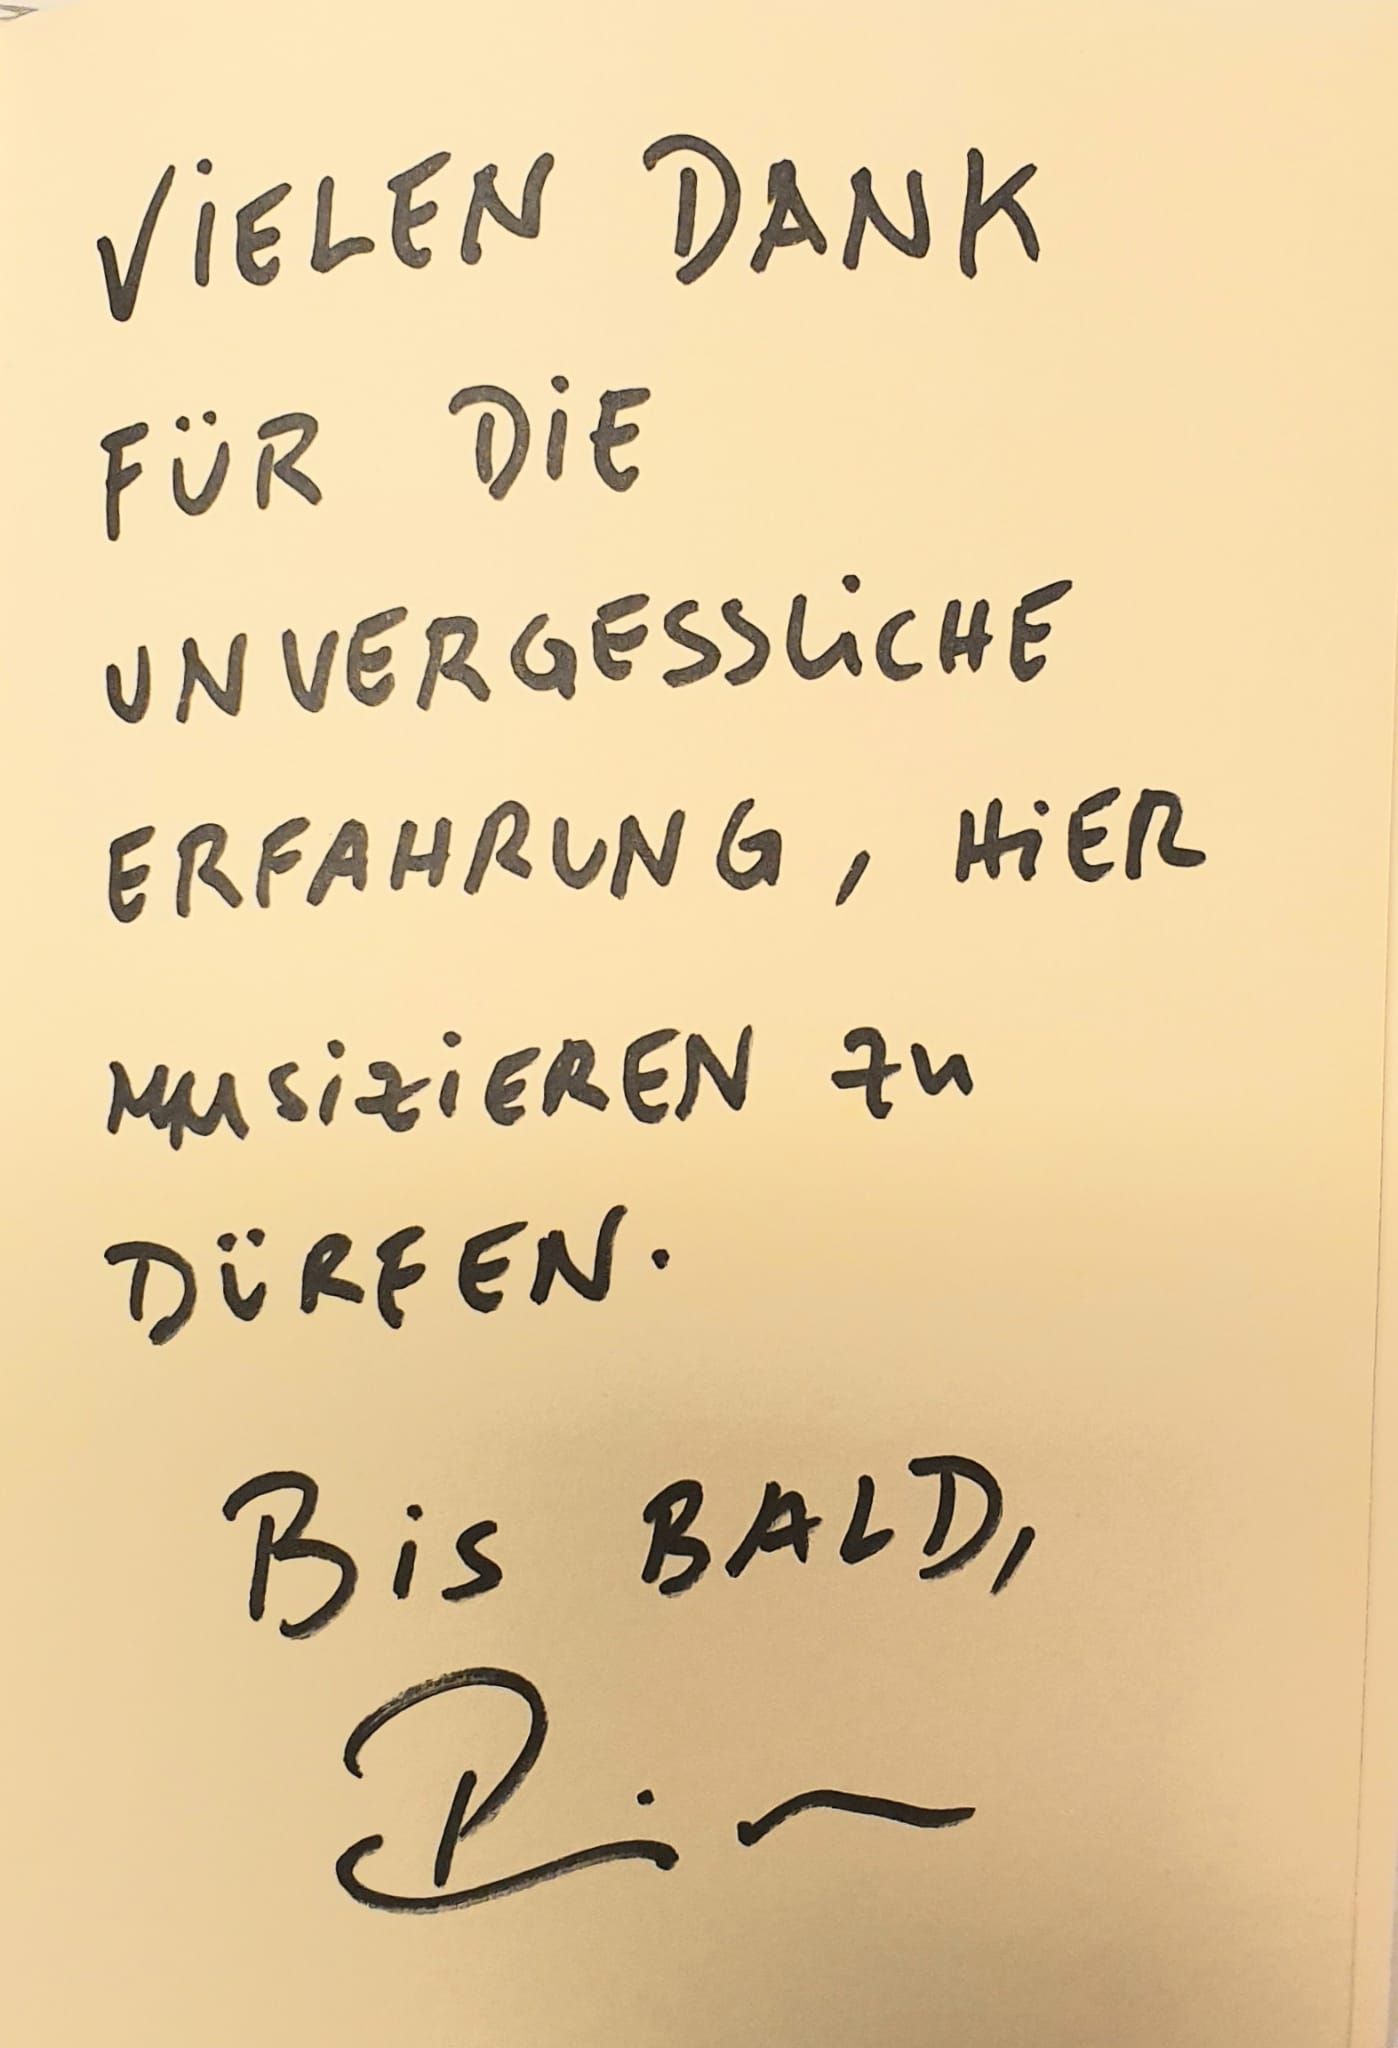 VIELEN DANK
FÜR DIE
UNVERGESSLICHE
ERFAHRUNG, HIER
MUSIZIEREN ZU
DÜRFEN.
BIS BALD,